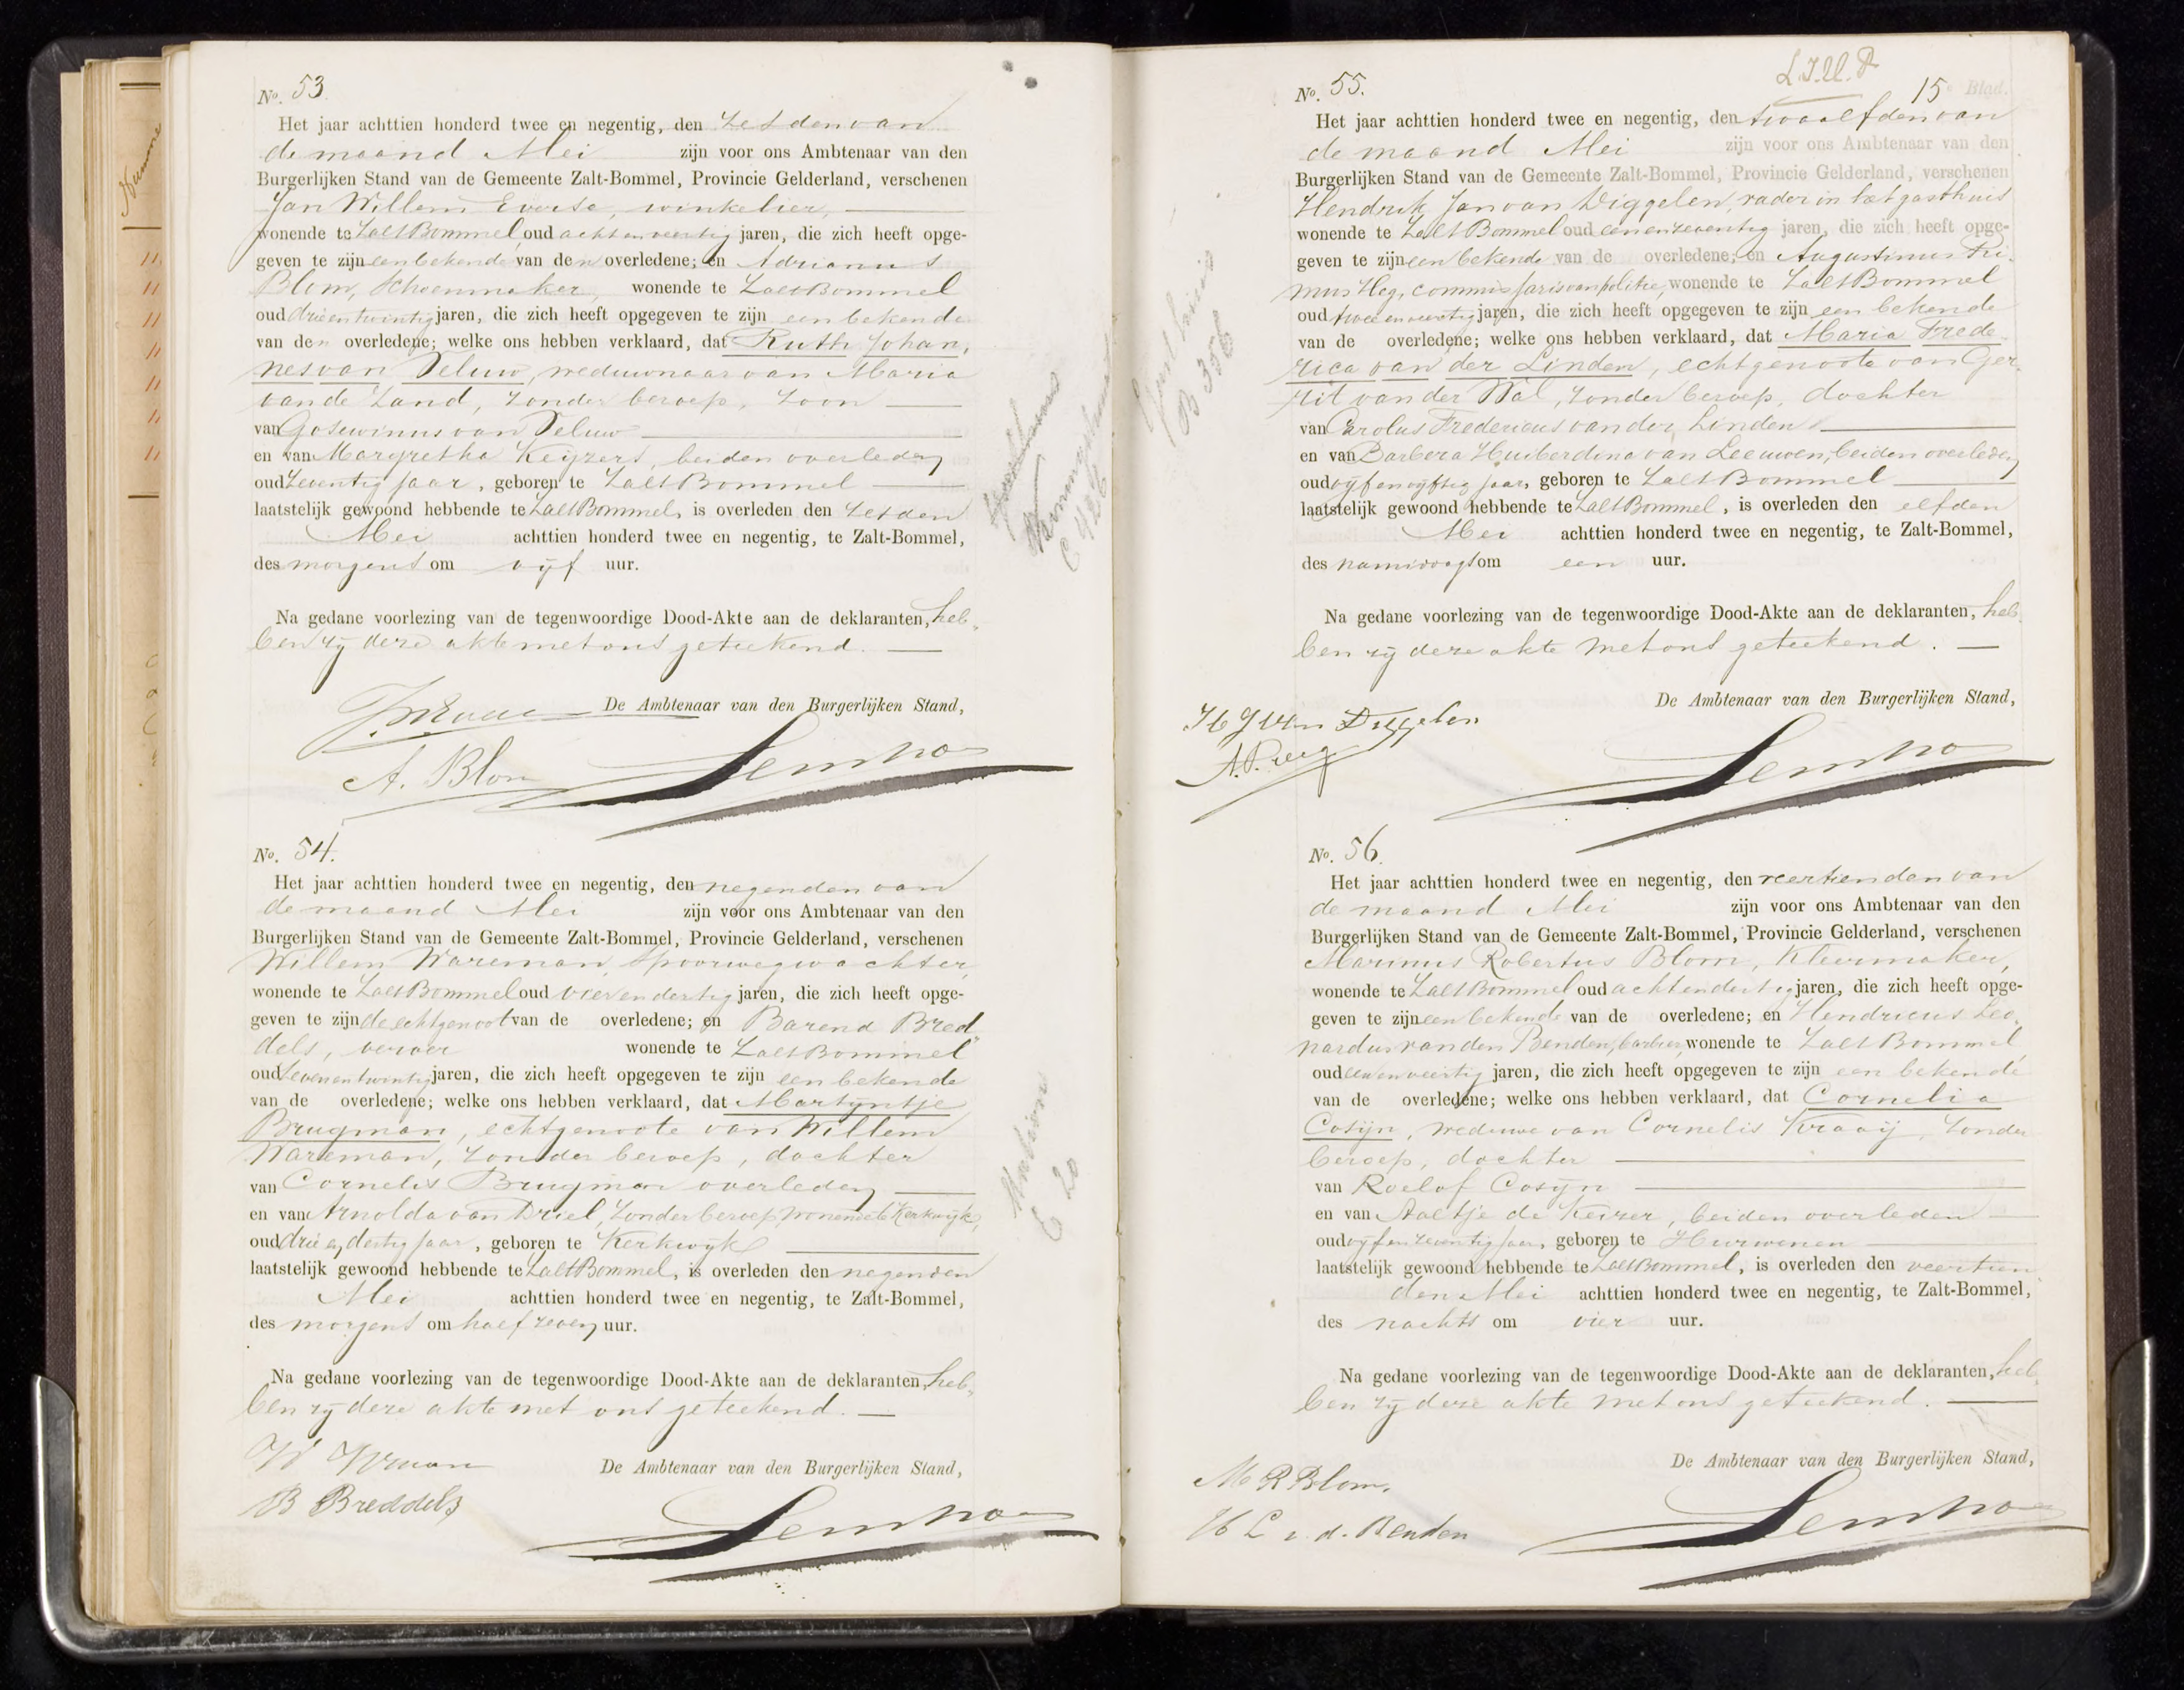 No. 53
Het jaar achttien honderd twee en negentig, den Zesden van
de maand Mei zijn voor ons Ambtenaar van den
Burgerlijken Stand van de Gemeente Zalt-Bommel, Provincie Gelderland, verschenen
Jan Willem Everse, winkelier,
wonende te ZaltBommel, oud acht en veertig jaren, die zich heeft opge-
geven te zijn een bekende van den overledene; en Adrianus
Blom, Schoenmaker, wonende te ZaltBommel
oud drie en twintig jaren, die zich heeft opgegeven te zijn een bekende
van den overledene; welke ons hebben verklaard, dat Ruth Johan,
nes van Veluw, weduwnaar van Maria
van de Zand, zonder beroep, zoon
van Gosewinus van Veluw
en van Margretha Keijzers, beiden overleden
oud Zeventig jaar, geboren te ZaltBommel
laatstelijk gewoond hebbende te ZaltBommel, is overleden den Zesden
Mei achttien honderd twee en negentig, te Zalt-Bommel,
des morgens om vijf uur.
Na gedane voorlezing van de tegenwoordige Dood-Akte aan de deklaranten, heb,
ben zij deze akte met ons geteekend.
De Ambtenaar van den Burgerlijken Stand,
A. Blom
No. 54.
Het jaar achttien honderd twee en negentig, den negenden van
de maand Mei zijn voor ons Ambtenaar van den
Burgerlijken Stand van de Gemeente Zalt-Bommel, Provincie Gelderland, verschenen
Willem Wareman, Spoorwegwachter,
wonende te ZaltBommel oud vier en dertig jaren, die zich heeft opge-
geven te zijn de echtgenoot van de overledene; en Barend Bred
dels, verver wonende te ZaltBommel
oud Zeven en twintig jaren, die zich heeft opgegeven te zijn een bekende
van de overledene; welke ons hebben verklaard, dat Martijntje
Brugman, echtgenoote van Willem
Wareman, zonder beroep, dochter
van Cornelis Brugman overleden
en van Arnolda van Driel, Zonder beroep, wonende te Kerkwijk,
oud drie en dertig jaar, geboren te Kerkwijk
laatstelijk gewoond hebbende te ZaltBommel, is overleden den negenden
Mei achttien honderd twee en negentig, te Zalt-Bommel,
des morgens om half zeven uur.
Na gedane voorlezing van de tegenwoordige Dood-Akte aan de deklaranten, heb,
ben zij deze akte met ons geteekend.
De Ambtenaar van den Burgerlijken Stand,
B Breddels
E 20
15e Blad.
No. 55.
Het jaar achttien honderd twee en negentig, den twaalfden van
de maand Mei zijn voor ons Ambtenaar van den
Burgerlijken Stand van de Gemeente Zalt-Bommel, Provincie Gelderland, verschenen
Hendrik Jan van Diggelen, vader in het gasthuis
wonende te ZaltBommel oud een en zeventig jaren, die zich heeft opge-
geven te zijn een bekende van de overledene; en Augustinus Pri,
mus Heg, commissaris van politie, wonende te ZaltBommel
oud twee en veertig jaren, die zich heeft opgegeven te zijn een bekende
van de overledene; welke ons hebben verklaard, dat Maria Frede
rica van der Linden, echtgenoote van Ger,
rit van der Wal, zonder beroep, dochter
van Carolus Fredericus van der Linden
en van Barbera Huiberdina van Leeuwen, beiden overleden
oud vijf en vijftig jaar, geboren te ZaltBommel
laatstelijk gewoond hebbende te ZaltBommel, is overleden den elfden
Mei achttien honderd twee en negentig, te Zalt-Bommel,
des namiddags om een uur.
Na gedane voorlezing van de tegenwoordige Dood-Akte aan de deklaranten, heb
ben zij deze akte met ons geteekend.
De Ambtenaar van den Burgerlijken Stand,
H J van Diggelen
No. 56.
Het jaar achttien honderd twee en negentig, den veertienden van
de maand Mei zijn voor ons Ambtenaar van den
Burgerlijken Stand van de Gemeente Zalt-Bommel, Provincie Gelderland, verschenen
Marinus Robertus Blom, Kleermaker,
wonende te ZaltBommel oud acht en dertig jaren, die zich heeft opge-
geven te zijn een bekende van de overledene; en Hendricus Leo,
nardus van den Benden, barbier, wonende te ZaltBommel,
oud een en veertig jaren, die zich heeft opgegeven te zijn een bekende
van de overledene; welke ons hebben verklaard, dat Cornelia
Cosijn, weduwe van Cornelis Kraaij, Zonder
beroep, dochter
van Roelof Cosijn
en van Aaltje de Keizer, beiden overleden
oud vijf en zeventig jaar, geboren te Hurwenen
laatstelijk gewoond hebbende te ZaltBommel, is overleden den veertien
den Mei achttien honderd twee en negentig, te Zalt-Bommel,
des nachts om vier uur.
Na gedane voorlezing van de tegenwoordige Dood-Akte aan de deklaranten, heb,
ben zij deze akte met ons geteekend.
De Ambtenaar van den Burgerlijken Stand,
M R Blom.
H L v. d. Benden